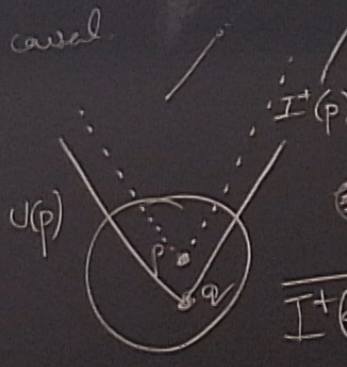 causal
I⁺(p)
U(p)
p
q
I⁺(